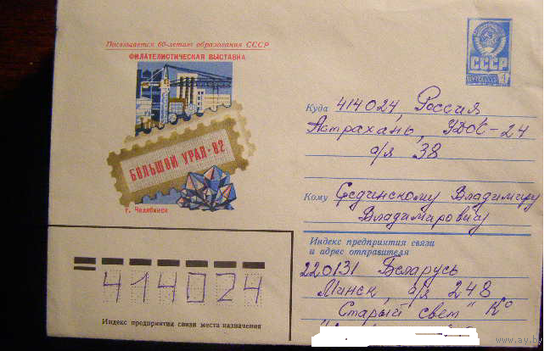 Посвящается 60-летию образования СССР
ФИЛАТЕЛИСТИЧЕСКАЯ ВЫСТАВКА
БОЛЬШОЙ УРАЛ-82
г. Челябинск
СССР
Куда 414024, Россия
Астрахань, УДОС-24
а/я 38
Кому Фединскому Владимиру
Владимировичу
Индекс предприятия связи
и адрес отправителя
220131 Беларусь
Минск, а/я 248
"Старый свет" К°
414024
Индекс предприятия связи места назначения